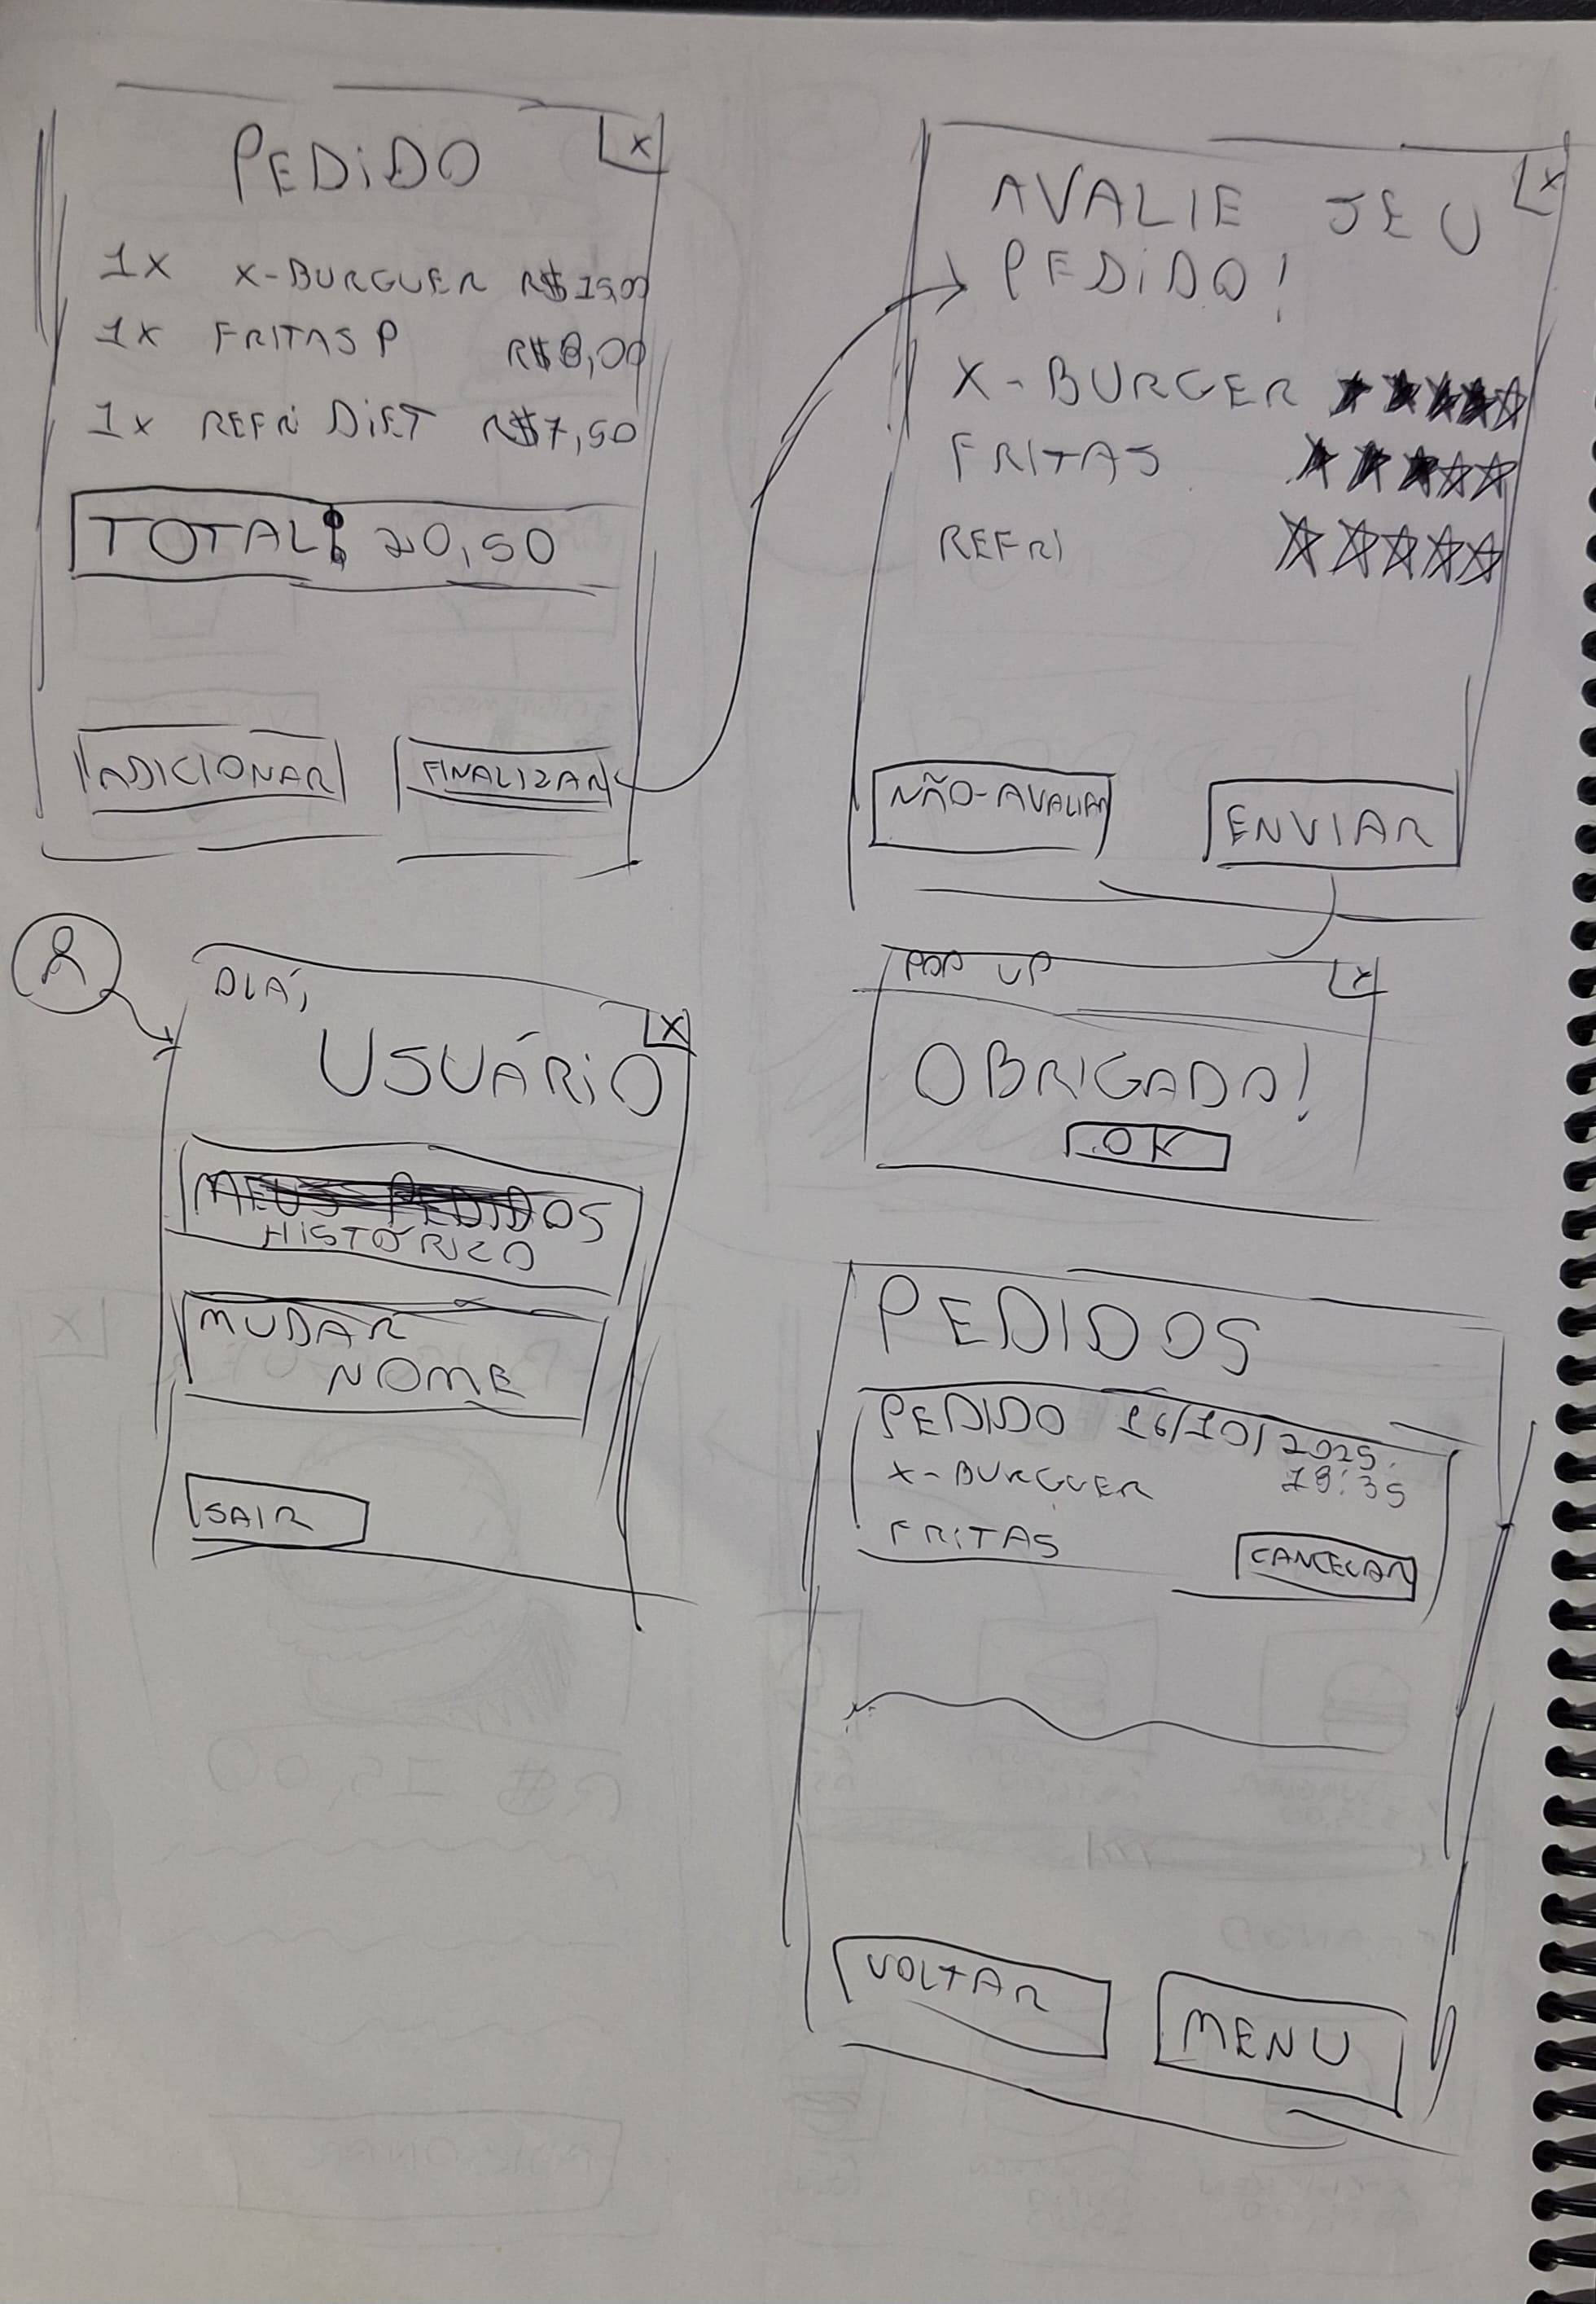 PEDIDO
X
1X X-BURGUER R$15,00
1X FRITAS P R$8,00
1X REFRI DIET R$7,50
TOTAL: 20,50
ADICIONAR
FINALIZAR
X
AVALIE SEU
PEDIDO!
X-BURGER
FRITAS
REFRI
NÃO-AVALIAR
ENVIAR
POP UP
X
OBRIGADO!
OK
OLÁ,
X
USUÁRIO
MEUS PEDIDOS
HISTÓRICO
MUDAR
NOME
SAIR
PEDIDOS
PEDIDO 16/10/2025
X-BURGUER 19:35
FRITAS
CANCELAR
VOLTAR
MENU